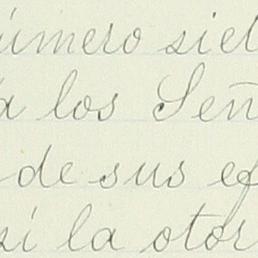 úmero siet
a los Señ
de sus ef
sí la otor